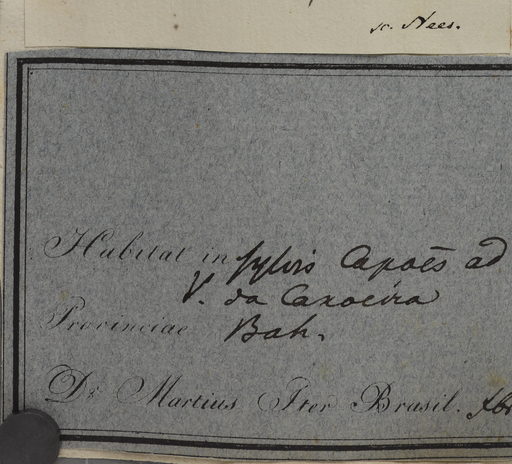 sc. Nees.
Habitat in sylvis Capoês ad
V. da Caxoeira
Provinciae Bah.
Dr. Martius Iter Brasil.